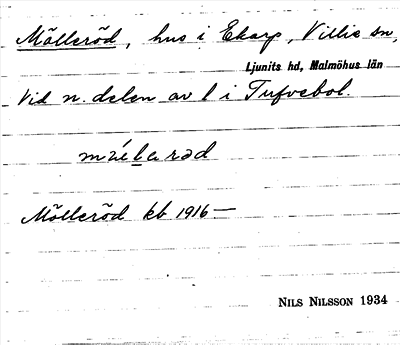 Mölleröd, hus i Ekarp, Villie sn,
Ljunits hd, Malmöhus län
Vid n. delen av l i Tufvebol.
Mölleröd kb 1916—
NILS NILSSON 1934